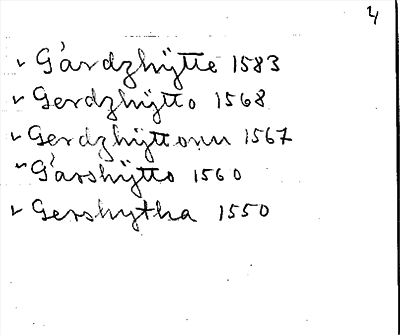 4
v Gårdzhÿtte 1583
v Gerdzhÿtto 1568
v Gerdzhÿttonn 1567
v Gårshÿtto 1560
v Gershytha 1550